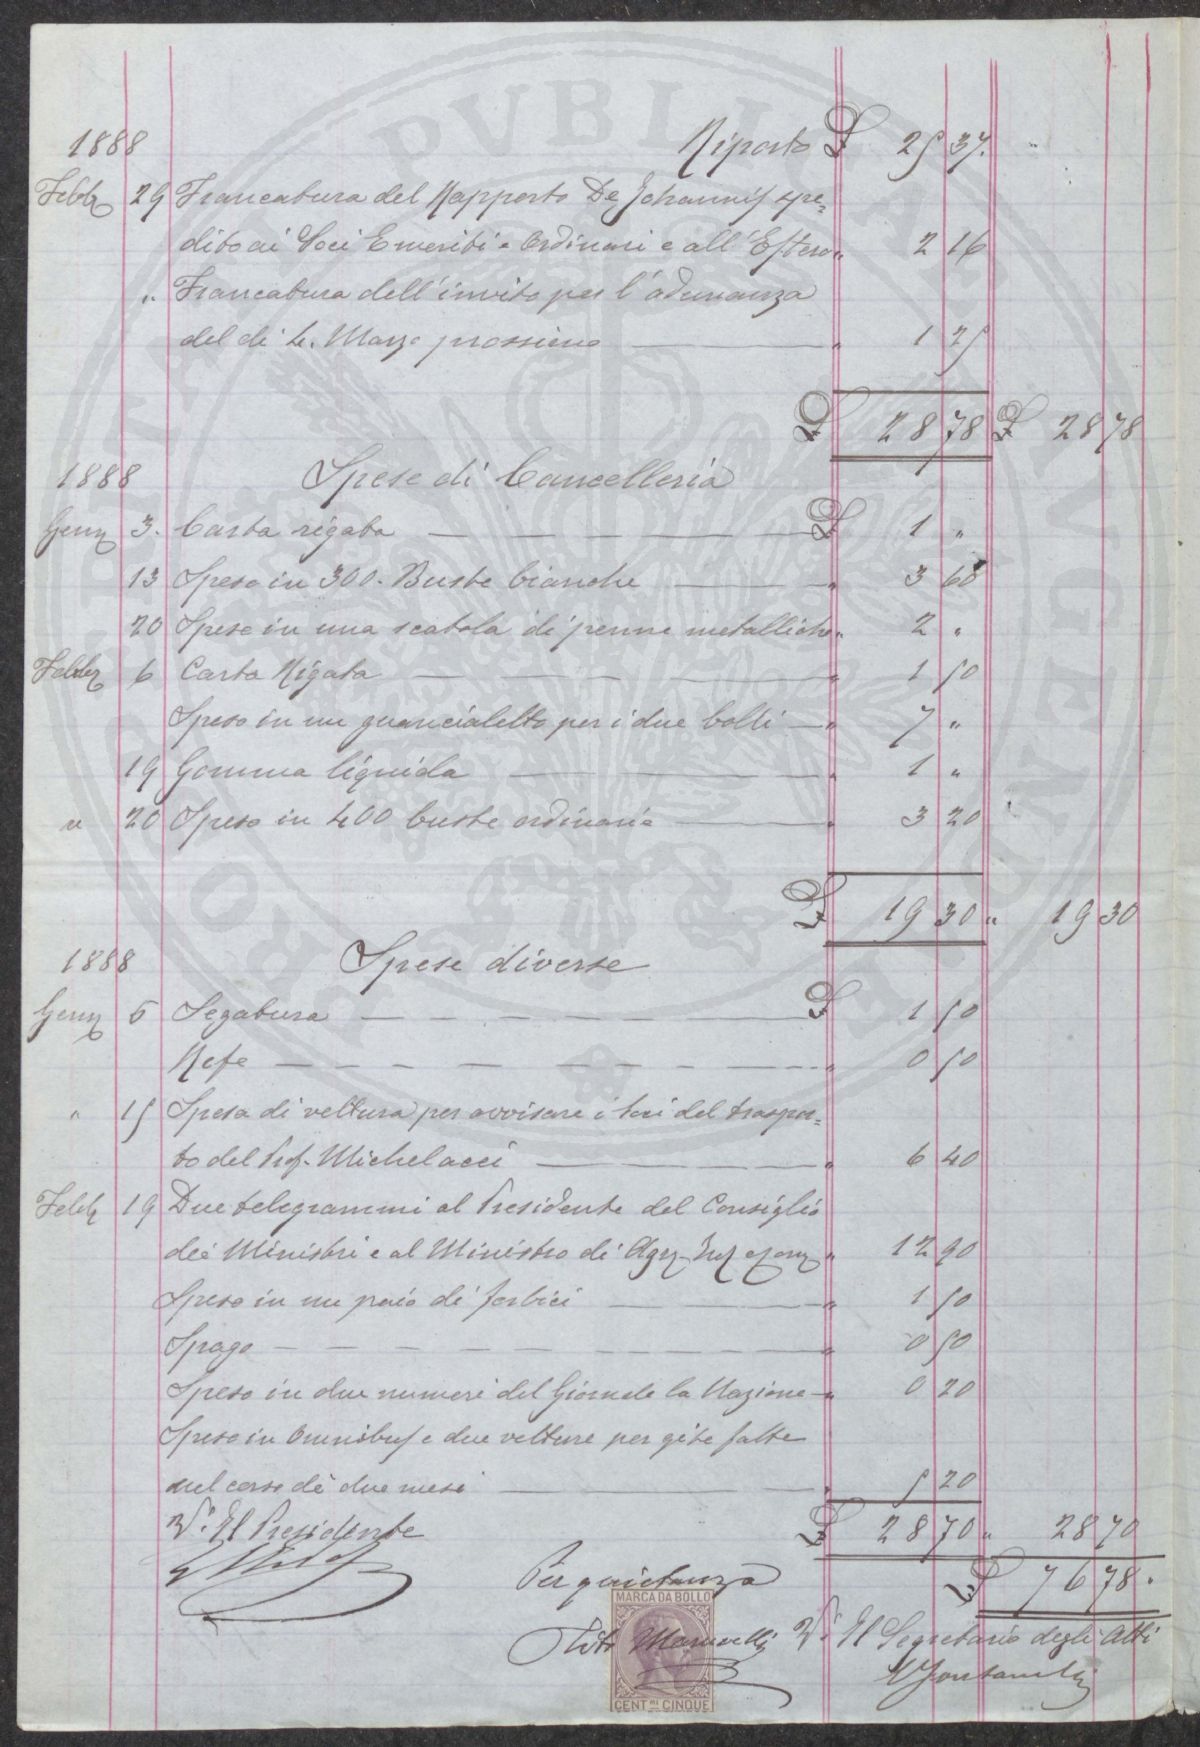 1888 Riporto £ 25 37.
Febb. 29 Francatura del Rapporto De Johannis spe=
dito ai Soci Emeriti e Ordinari e all'Estero " 2 16
" Francatura dell'invito per l'adunanza
del dì 4. Marzo prossimo — " 1 25
£ 28 78 £ 28 78
1888 Spese di Cancelleria
Genn 3. Carta rigata — £ 1 "
13 Speso in 300. Buste bianche — " 3 60
20 Spese in una scatola di penne metalliche " 2 "
Febb 6 Carta Rigata — " 1 50
Speso in un guancialetto per i due bolli — " 7 "
19 Gomma liquida — " 1 "
" 20 Speso in 400 buste ordinarie — " 3 20
£ 19 30 " 19 30
1888 Spese diverse
Genn 6 Segatura — £ 1 50
Refe — " 0 50
" 15 Spesa di vettura per avvisare i Soci del traspor=
to del Prof. Michelacci — " 6 40
Febb 19 Due telegrammi al Presidente del Consiglio
dei Ministri e al Ministro di Agr. Ind. e Com " 12 90
Speso in un paio di forbici — " 1 50
Spago — " 0 50
Speso in due numeri del Giornale la Nazione — " 0 20
Speso in Omnibus e due vetture per gite fatte
nel corso di due mesi — " 5 20
V° Il Presidente £ 28 70 " 28 70
Per quietanza £ 76 78.
MARCA DA BOLLO
V° Il Segretario degli Atti
CENT.MI CINQUE
PVBLICAE